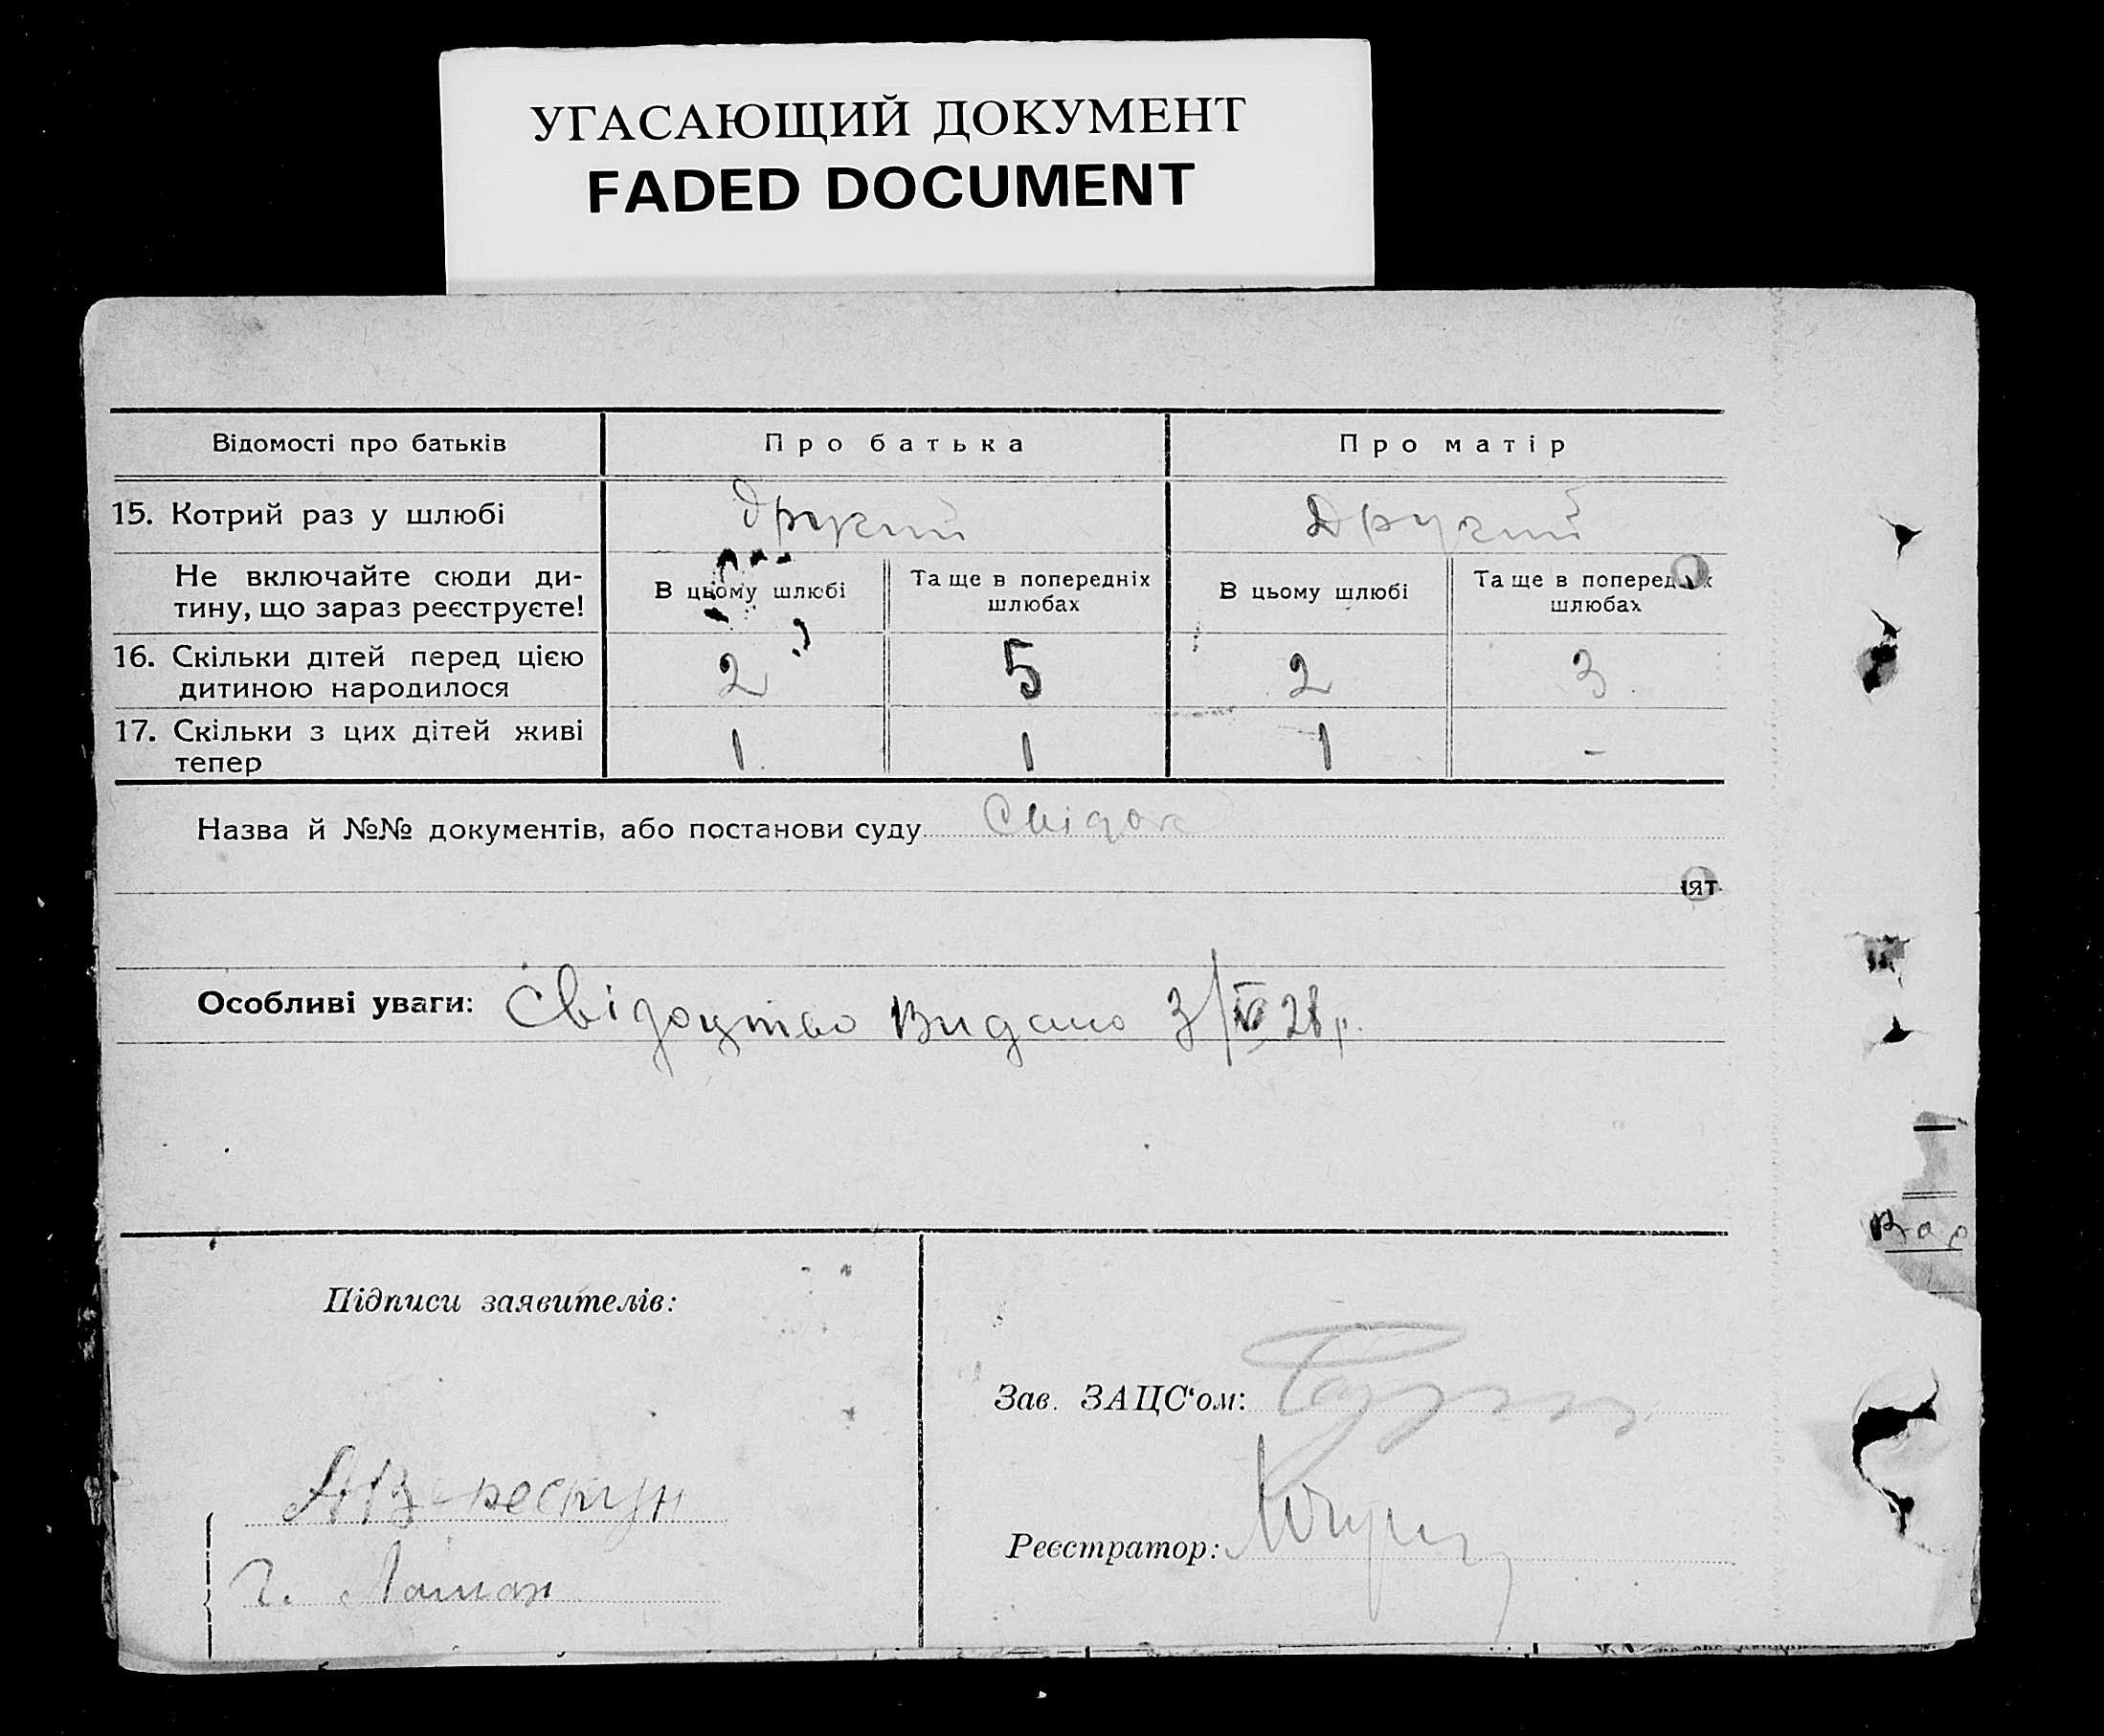 УГАСАЮЩИЙ ДОКУМЕНТ
FADED DOCUMENT
Відомості про батьків
Про батька
Про матір
15. Котрий раз у шлюбі
другий
Другий
Не включайте сюди ди-
тину, що зараз реєструєте!
В цьому шлюбі
Та ще в попередніх
шлюбах
В цьому шлюбі
Та ще в
шлюбах
16. Скільки дітей перед цією
дитиною народилося
2
5
2
3
17. Скільки з цих дітей живі
тепер
1
1
1
-
Назва й №№ документів, або постанови суду
Свідок
ят.
Особливі уваги: Свідоцтво Видано 3/IV 28 р.
Підписи заявителів:
Зав. ЗАЦС'ом:
Реєстратор:
Г. Лошак